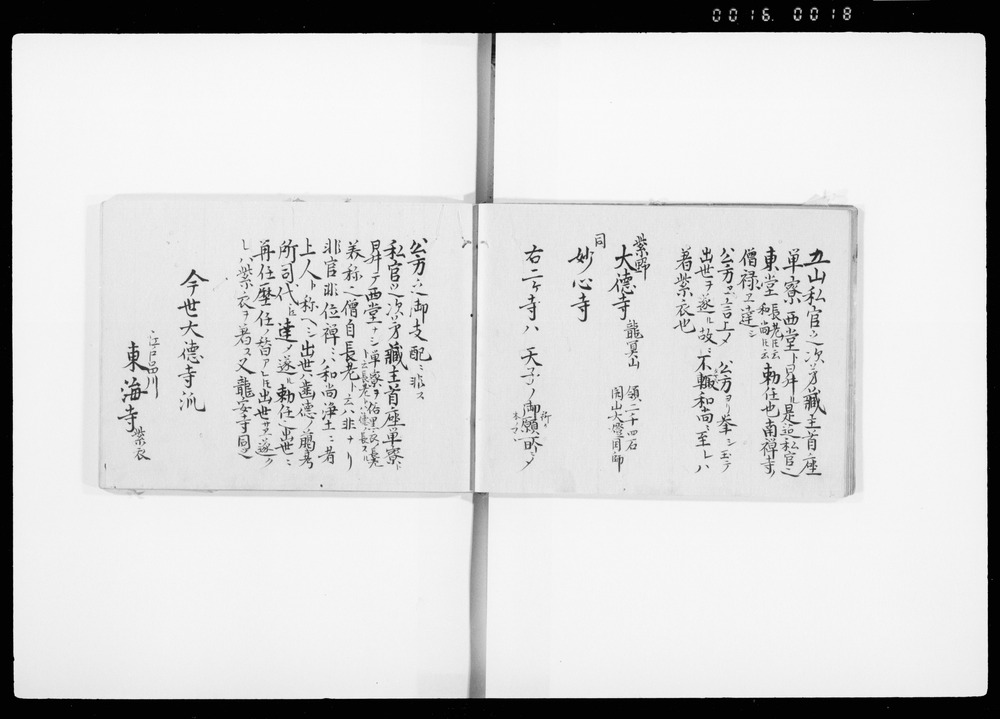 0016 0018
五山私官之次第藏主首座
単寮西堂ト昇ル是迄私官之
東堂 長老ニモ云 和尚ニモ云 勅任也南禅寺ノ
僧禄エ達シ
公方エ言上メ 公方ヨリ挙シ玉テ
出世ヲ遂ル故ニ不輙和尚ニ至レハ
着紫衣也
紫野
大徳寺 龍寳山 領二千四石
開山大燈国師
同
妙心寺
右二ケ寺ハ 天子ノ御願所ニメ
公方之御支配ニ非ス
私官之次第藏主首座単寮ニ
昇テ西堂ナシ単寮ヲ
美称之僧自長老ト云ハ非ナリ
非官非位禅ニハ和尚浄土ニ者
上人ト称ヘシ出世ハ歯徳ノ
所司代ニ達メ遂ル勅任之出世ニ
再任歴任ノ皆アレ𪜈出世サヘ遂ク
レハ紫衣ヲ着ス又龍安寺同之
今世大徳寺派
江戸品川
東海寺 紫衣